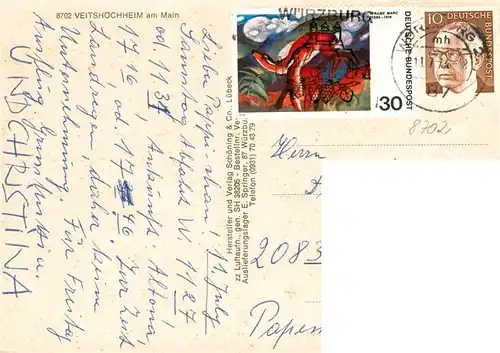 8702 VEITSHÖCHHEIM am Main
11. July
Samstag Abfahrt W. 11 27
od 1134, Ankunft Altona
1746 od 1746. Zur Zeit
Landregen daher keine
Unternehmung. Für Freitag
Ausflug
UND CHRISTINA
Hersteller und Verlag Schöning & Co., Lübeck
zz Luftaufn., gen. SH 38205 - Bestellnr. Ve
Auslieferungslager E. Springer, 87 Würzbu
Telefon (0931) 70 43 79
WÜRZBURG
FRANZ MARC
1880-1916
DEUTSCHE BUNDESPOST
30
10
DEUTSCHE BUNDESPOST
mh
8702
Herrn
2083
Papen